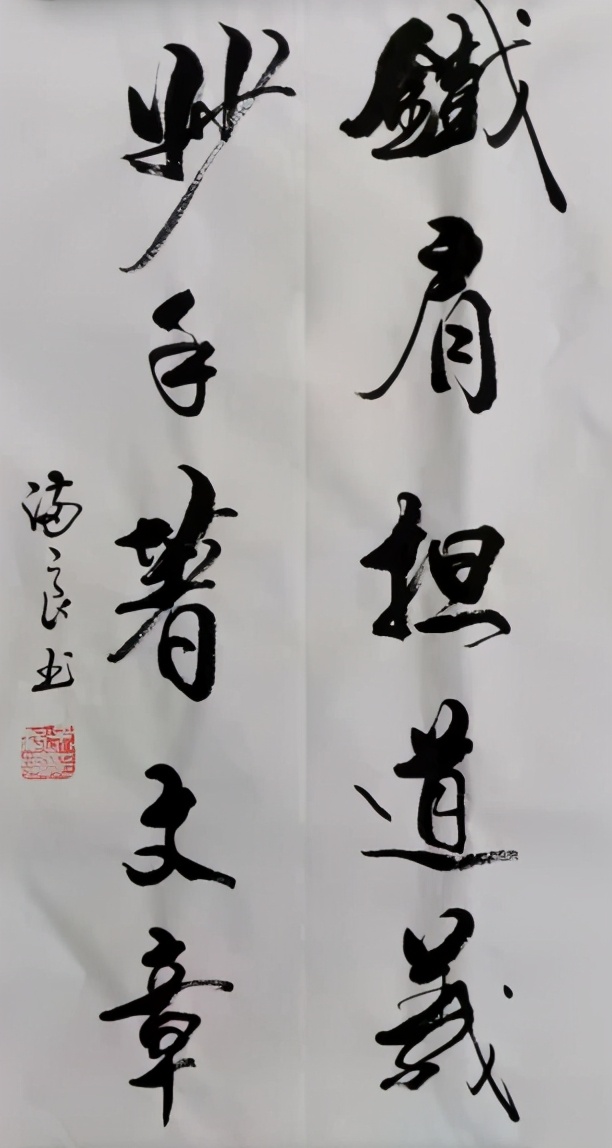 鐵肩担道義
妙手著文章
满良书